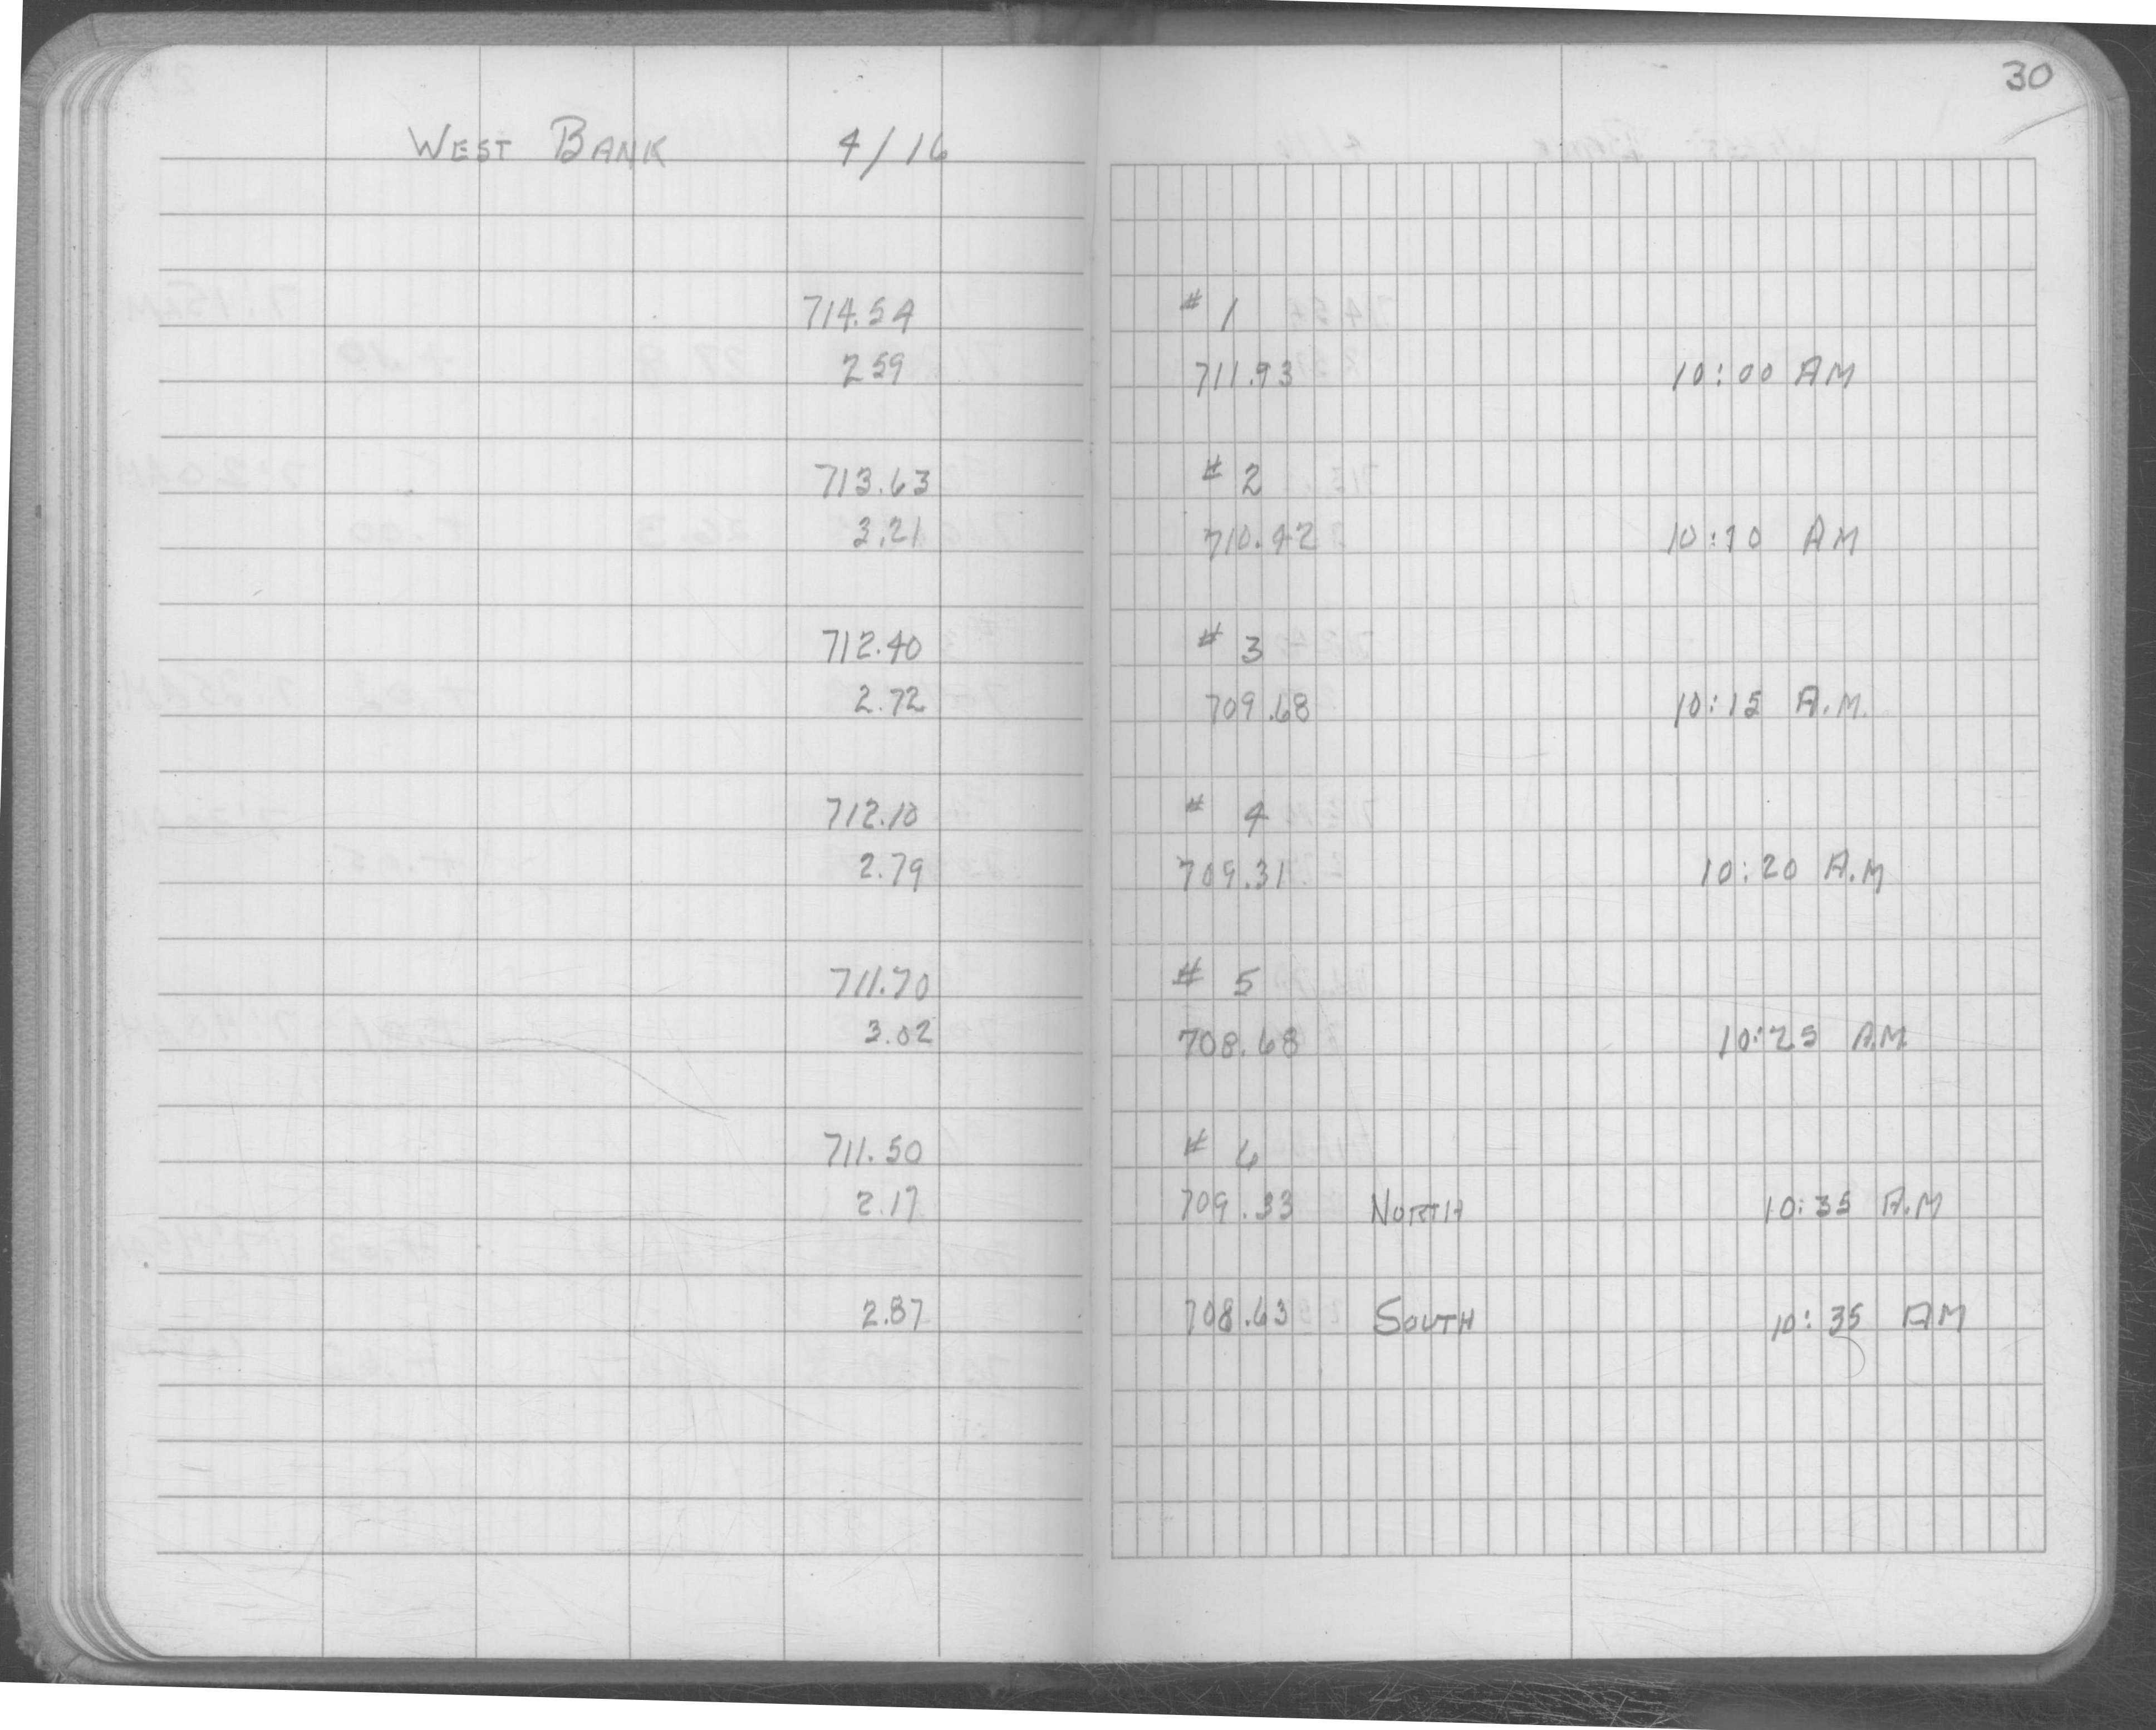 30
WEST BANK 4/16
714.54 # 1
2 59 711.93 10:00 AM
713.63 # 2
3.21 710.42 10:10 AM
712.40 # 3
2.72 709.68 10:15 A.M.
712.10 # 4
2.79 709.31 10:20 A.M
711.70 # 5
3.02 708.68 10:25 A.M.
711.50 # 6
2.17 709.33 NORTH 10:35 A.M
2.87 708.63 SOUTH 10:35 AM